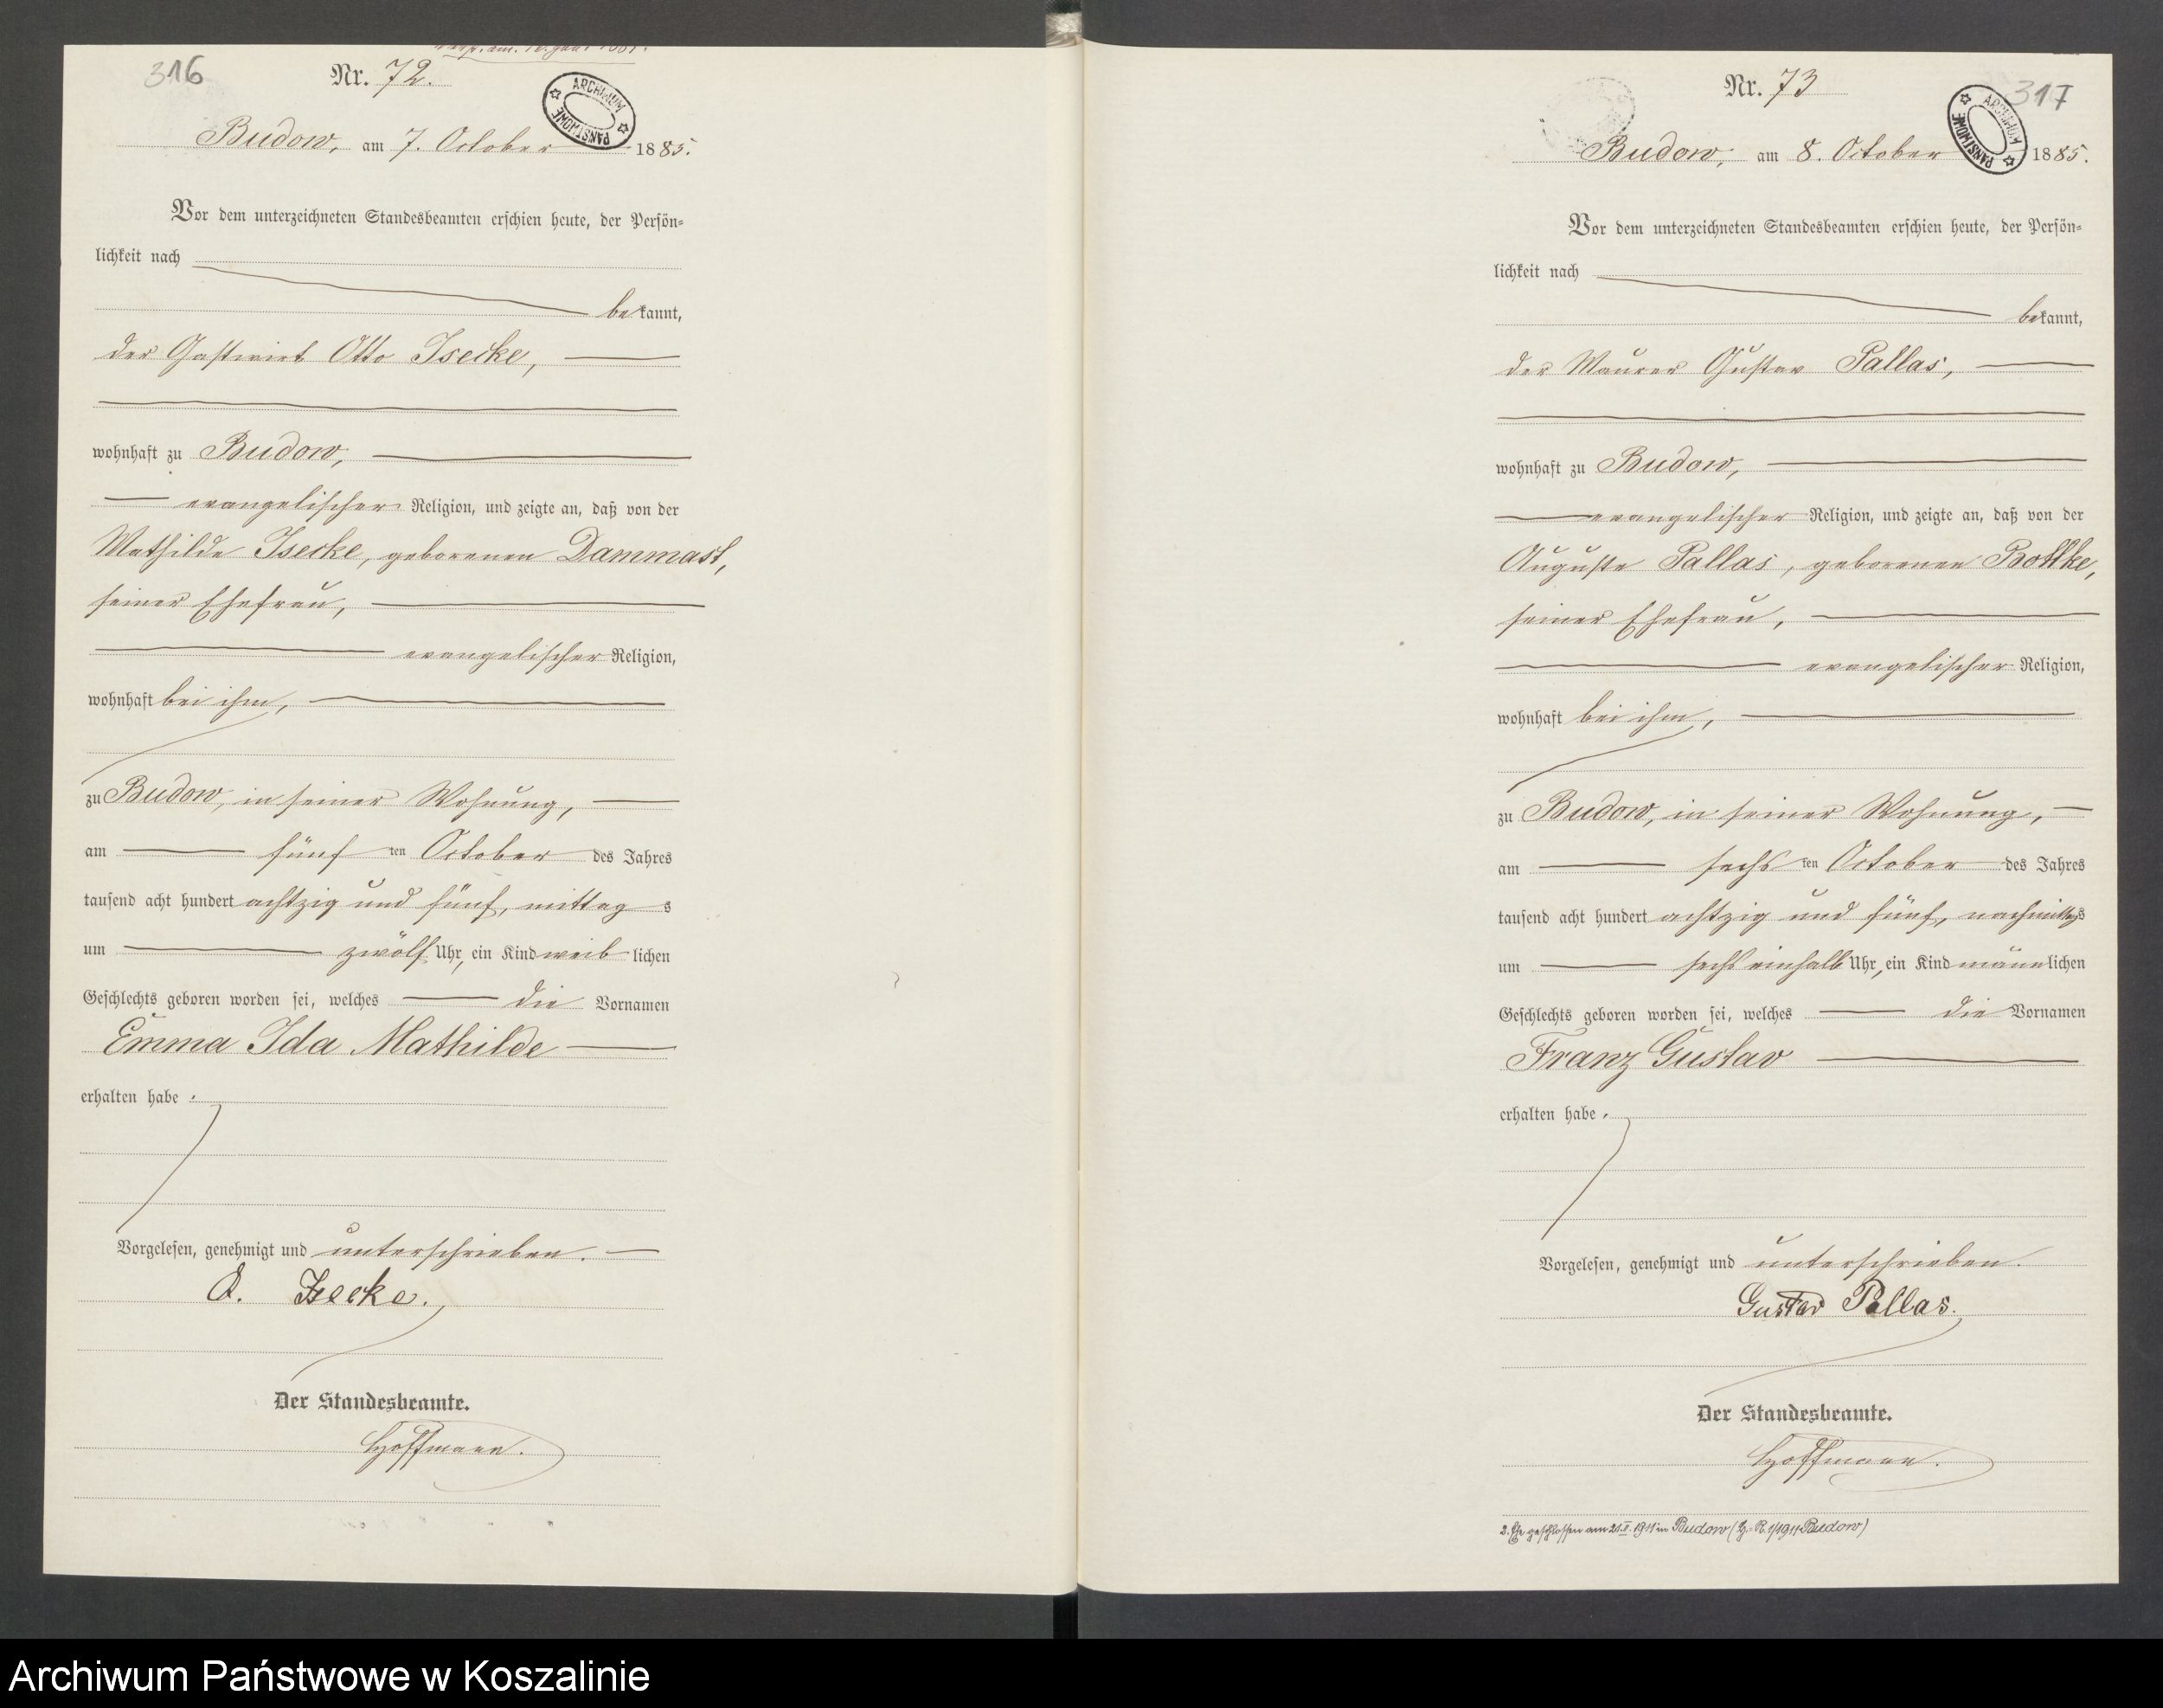 316
Nr. 72.
ARCHIWUM PAŃSTWOWE
Budow, am 7. October 1885.
Vor dem unterzeichneten Standesbeamten erschien heute, der Persön-
lichkeit nach
bekannt,
der Gastwirt Otto Isecke,
wohnhaft zu Budow,
evangelischer Religion, und zeigte an, daß von der
Mathilde Isecke, geborenen Dammast,
seiner Ehefrau,
evangelischer Religion,
wohnhaft bei ihm,
zu Budow, in seiner Wohnung,
am fünf ten October des Jahres
tausend acht hundert achtzig und fünf, mittag s
um zwölf Uhr, ein Kind weib lichen
Geschlechts geboren worden sei, welches die Vornamen
Emma Ida Mathilde
erhalten habe.
Vorgelesen, genehmigt und unterschrieben.
O. Isecke.
Der Standesbeamte.
Hoffmann.
317
Nr. 73
ARCHIWUM PAŃSTWOWE
Budow, am 8. October 1885.
Vor dem unterzeichneten Standesbeamten erschien heute, der Persön-
lichkeit nach
bekannt,
der Maurer Gustav Pallas,
wohnhaft zu Budow,
evangelischer Religion, und zeigte an, daß von der
Auguste Pallas, geborenen Bottke,
seiner Ehefrau,
evangelischer Religion,
wohnhaft bei ihm,
zu Budow, in seiner Wohnung,
am sechs ten October des Jahres
tausend acht hundert achtzig und fünf, nachmittags
um sechs einhalb Uhr, ein Kind männlichen
Geschlechts geboren worden sei, welches die Vornamen
Franz Gustav
erhalten habe.
Vorgelesen, genehmigt und unterschrieben.
Gustav Pallas.
Der Standesbeamte.
Hoffmann.
2. Ehe geschlossen am 21.II.1941 in Budow (H.-R. 1/1941 Budow)
Archiwum Państwowe w Koszalinie